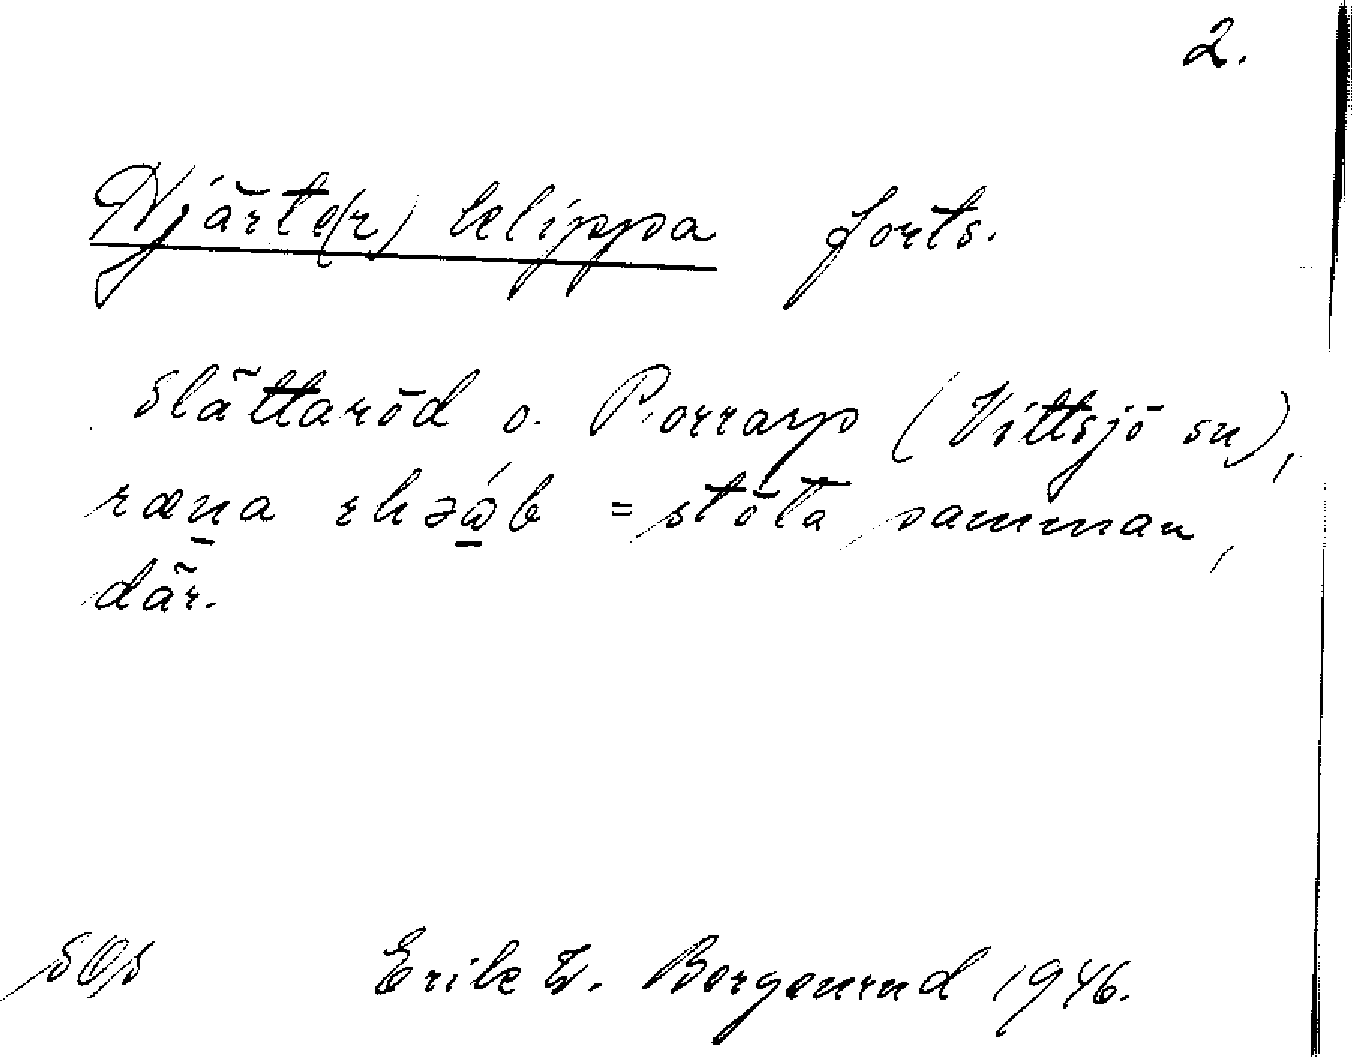 2.
Njärte(r)klippa forts.
Slättaröd o. Porrarp (Vittsjö sn),
ræna = stöta samman,
där.
Erik W. Borgenrud 1946.